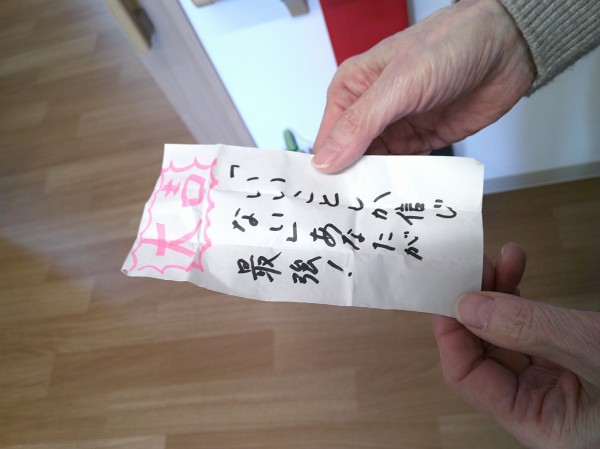 大吉
「いいことしか信じ
ない」あなたが
最強!